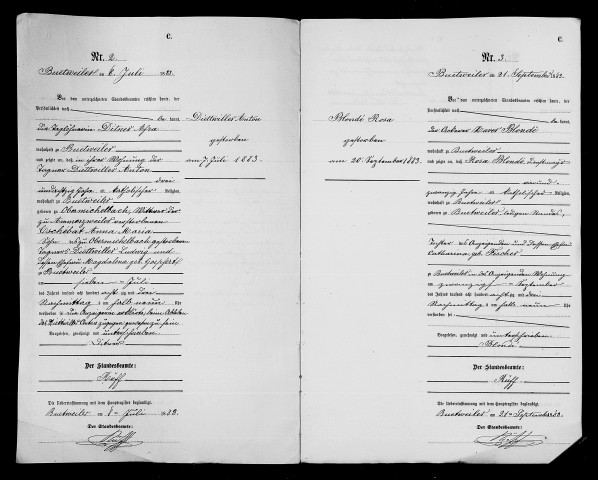 C.
Nr. 2.
Bustweiler am 8. Juli 1883.
Vor dem unterzeichneten Standesbeamten erschien heute, der
Persönlichkeit nach
be kannt,
Die
wohnhaft zu Bustweiler
und zeigte an, daß in ihrer Wohnung der
Tagner Diettwiller Anton
drei
Jahre alt, katholischer Religion,
wohnhaft zu Bustweiler
geboren zu Obermichelbach, Wittwer der
zu Ammerzweiler verstorbenen
Anna Maria
Sohn des zu Obermichelbach gestorbenen
Tagners Diettwiller Ludwig und
Magdalena geb.
zu Bustweiler
am sieben ten Juli
des Jahres tausend acht hundert achtzig und drei
Nachmittag s um halb neun Uhr
verstorben sei
Vorgelesen, genehmigt und unterschrieben
Ditner
Der Standesbeamte:
Rüff
Die Uebereinstimmung mit dem Hauptregister beglaubigt
Bustweiler am 8ten Juli 1883.
Der Standesbeamte:
Rüff
Diettwiller Anton
gestorben
am 7 Juli 1883
C.
Nr. 3.
Bustweiler am 21. September 1883.
Vor dem unterzeichneten Standesbeamten erschien heute, der
Persönlichkeit nach
be kannt,
der Ackerer Xaver Blondé
wohnhaft zu Bustweiler
und zeigte an, daß Rosa Blondé, Dienstmagd
zwanzig Jahre alt, katholischer Religion,
wohnhaft zu Bustweiler
geboren zu Bustweiler, ledigen Standes,
Tochter des Anzeigenden und dessen Ehefrau
Catharina geb. Fischer
zu Bustweiler in des Anzeigenden Wohnung
am zwanzigsten September
des Jahres tausend acht hundert achtzig und drei
Nachmittag s um halb neun Uhr
verstorben sei
Vorgelesen, genehmigt und unterschrieben
Blondé
Der Standesbeamte:
Rüff
Die Uebereinstimmung mit dem Hauptregister beglaubigt
Bustweiler am 21ten September 1883.
Der Standesbeamte:
Rüff
Blondé Rosa
gestorben
am 20 September 1883.